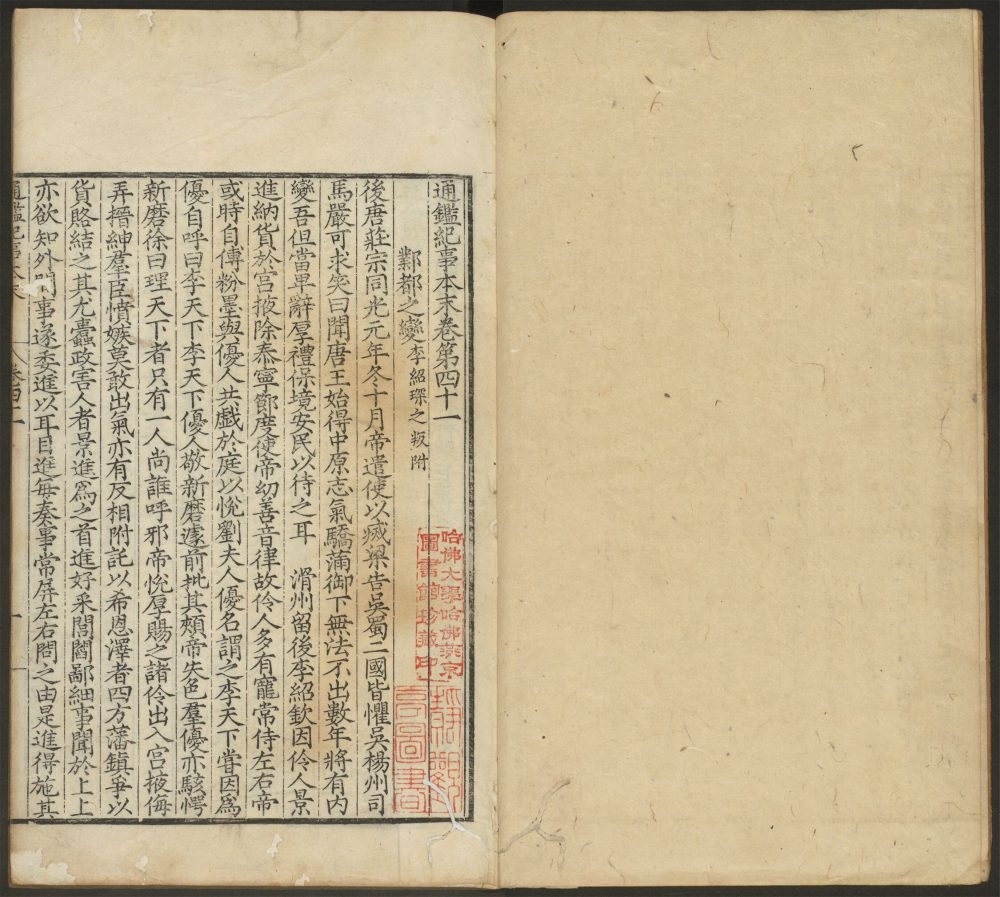 通鑑紀事本末卷第四十一
鄴都之變 李紹琛之叛附
後唐莊宗同光元年冬十月帝遣使以滅梁告吳蜀二國皆懼吳楊州司
馬嚴可求笑曰聞唐王始得中原志氣驕滿御下無法不出數年將有內
變吾但當卑辭厚禮保境安民以待之耳 滑州留後李紹欽因伶人景
進納貨於宮掖除泰寧節度使帝幼善音律故伶人多有寵常侍左右帝
或時自傅粉墨與優人共戲於庭以悅劉夫人優名謂之李天下嘗因爲
優自呼曰李天下李天下優人敬新磨遽前批其頰帝失色羣優亦駭愕
新磨徐曰理天下者只有一人尚誰呼邪帝悅厚賜之諸伶出入宮掖侮
弄搢紳羣臣憤嫉莫敢出氣亦有反相附託以希恩澤者四方藩鎮爭以
貨賂結之其尤蠹政害人者景進爲之首進好采閭閻鄙細事聞於上上
亦欲知外間事遂委進以耳目進每奏事常屏左右問之由是進得施其
通鑑紀事本末 卷四十一 一
哈佛大學哈佛燕京
圖書館珍藏印
圖書